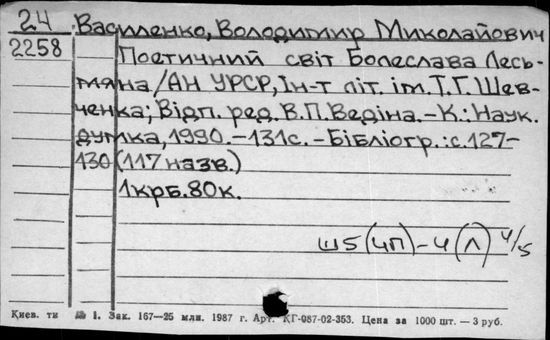 24 Василенко, Володимир Миколайович
2258 Поетичний світ Болеслава Лесь-
мяна/АН УРСР, Ін-т літ. ім. Т.Г. Шев-
ченка; Відп. ред. В.П. Ведіна. – К.: Наук.
думка, 1990. – 131с. – Бібліогр.: с. 127–
130 (117 назв.)
1крб. 80к.
Ш5(4П)-4(Л) 4/5
Киев. ти № 1. Зак. 167—25 млн. 1987 г. Арт. КГ-087-02-353. Цена за 1000 шт. — 3 руб.